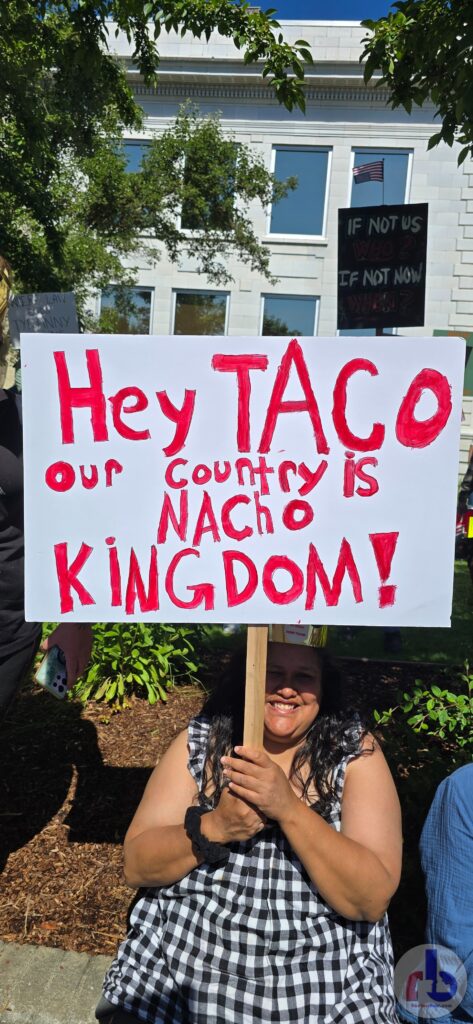 IF NOT US
WHO?
IF NOT NOW
WHEN?
TYRANNY
Hey TACO
our country is
NACHO
KINGDOM!